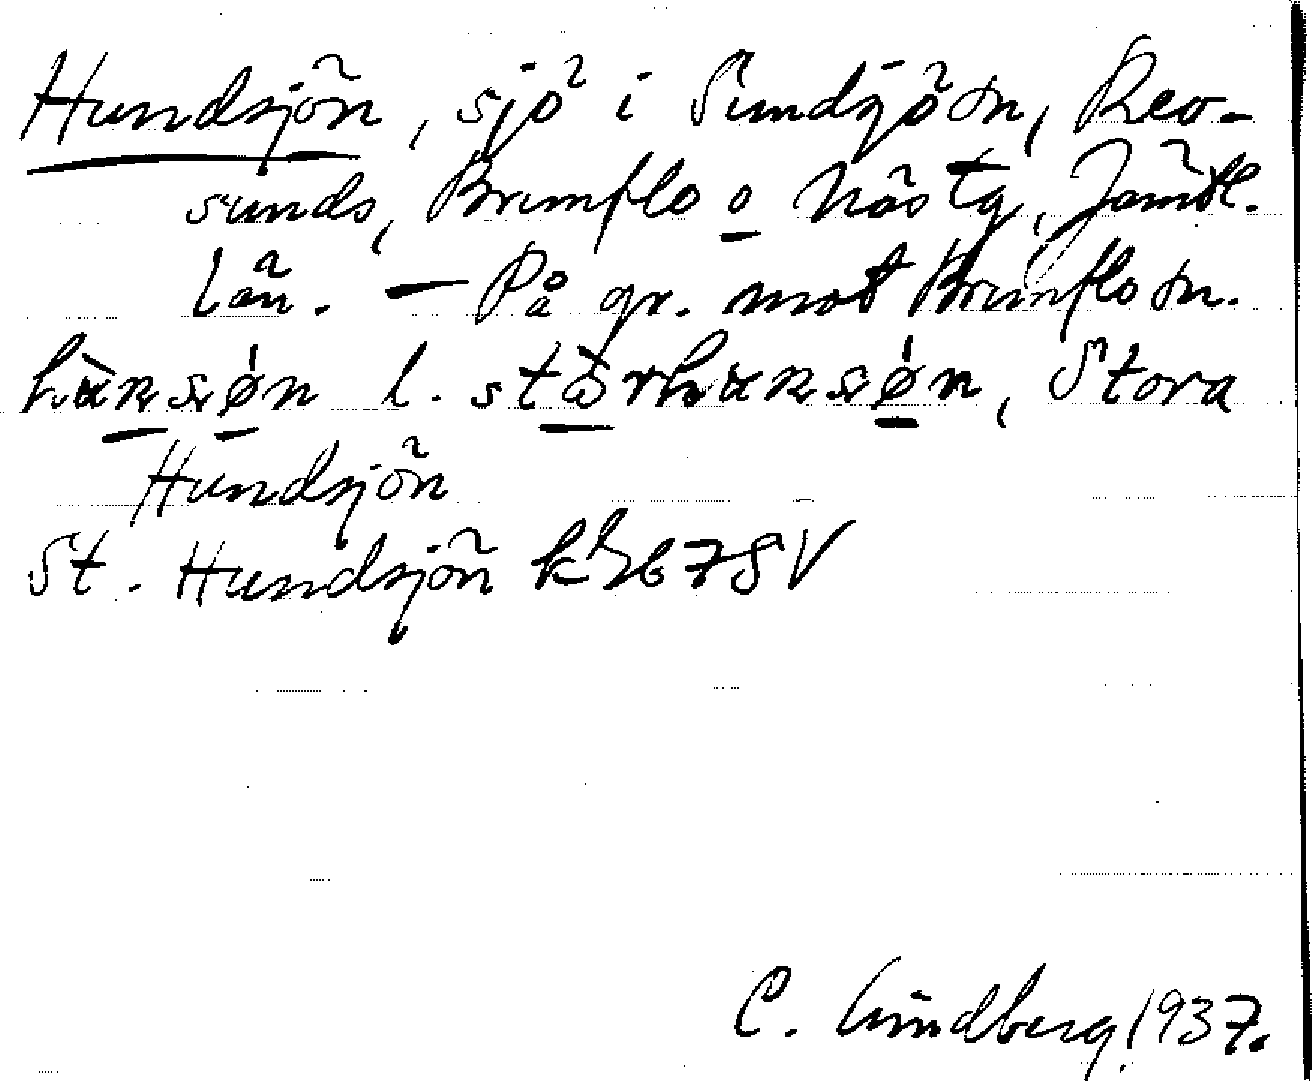 Hundsjön, sjö i Sundsjö sn, Rev-
sunds, Brunflo o Näs tg, Jämtl.
län. — På gr. mot Brunflo sn.
l. Stora
Hundsjön
St. Hundsjön kbl 67 SV
C. Lindberg 1937.